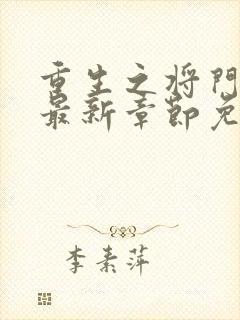 重生之将门
最新章节免
李素萍